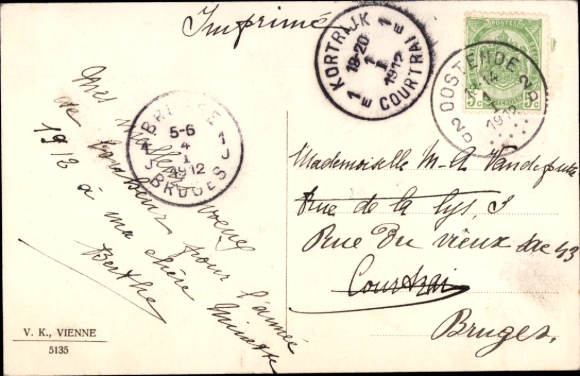 Imprimé
1 KORTRIJK 1E
18-20
1
I
1912
1E COURTRAI
OOSTENDE
5c 5c
1912
OOSTENDE 2D
BRUGGE
5-6
4
I
1912
BRUGES
Mes meilleurs voeux
de bonheur pour l'année
1912 à ma chère Minette
Berthe
Mademoiselle M-A Vandeputte
Rue de la Lys, 3
Rue Du vieux sac 43
Courtrai
Bruges.
V. K., VIENNE
5135